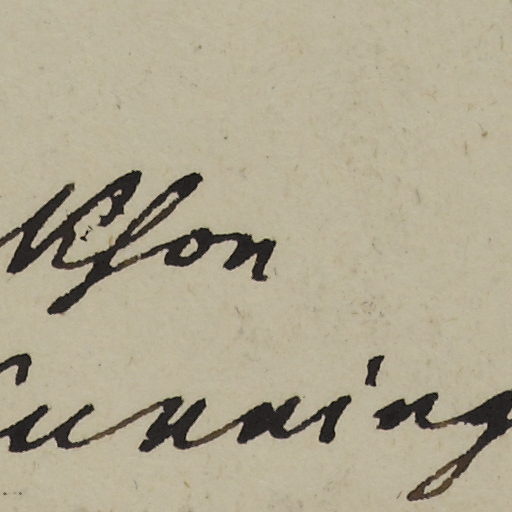 kson
Cunning